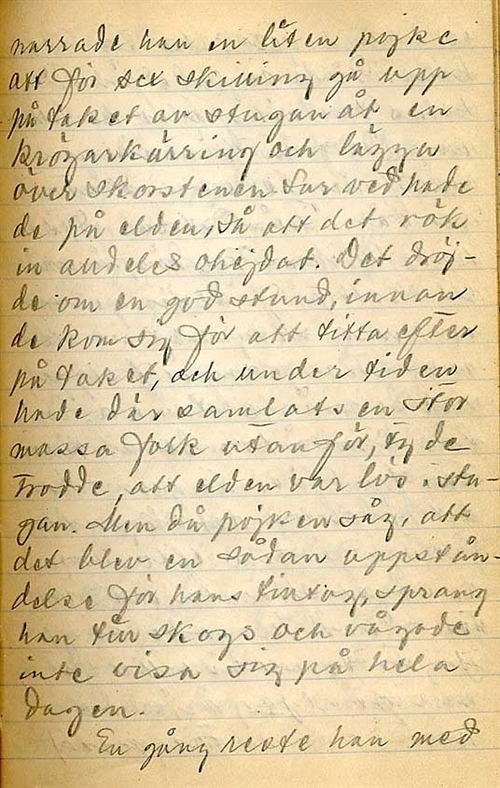 narrade han en liten pojke
att för sex skilling gå upp
på taket av stugan åt en
krögarkärring och lägga
över skorstenen. Sur ved hade
de på elden, så att det rök
in andeles ohejdat. Det dröj-
de om en god stund, innan
de kom sig för att titta efter
på taket, och under tiden
hade där samlats en stor
massa folk utanför, ty de
trodde, att elden var lös i stu-
gan. Men då pojken såg, att
det blev en sådan uppstån-
delse för hans tintag, sprang
han till skogs och vågade
inte visa sig på hela
dagen.
En gång reste han med